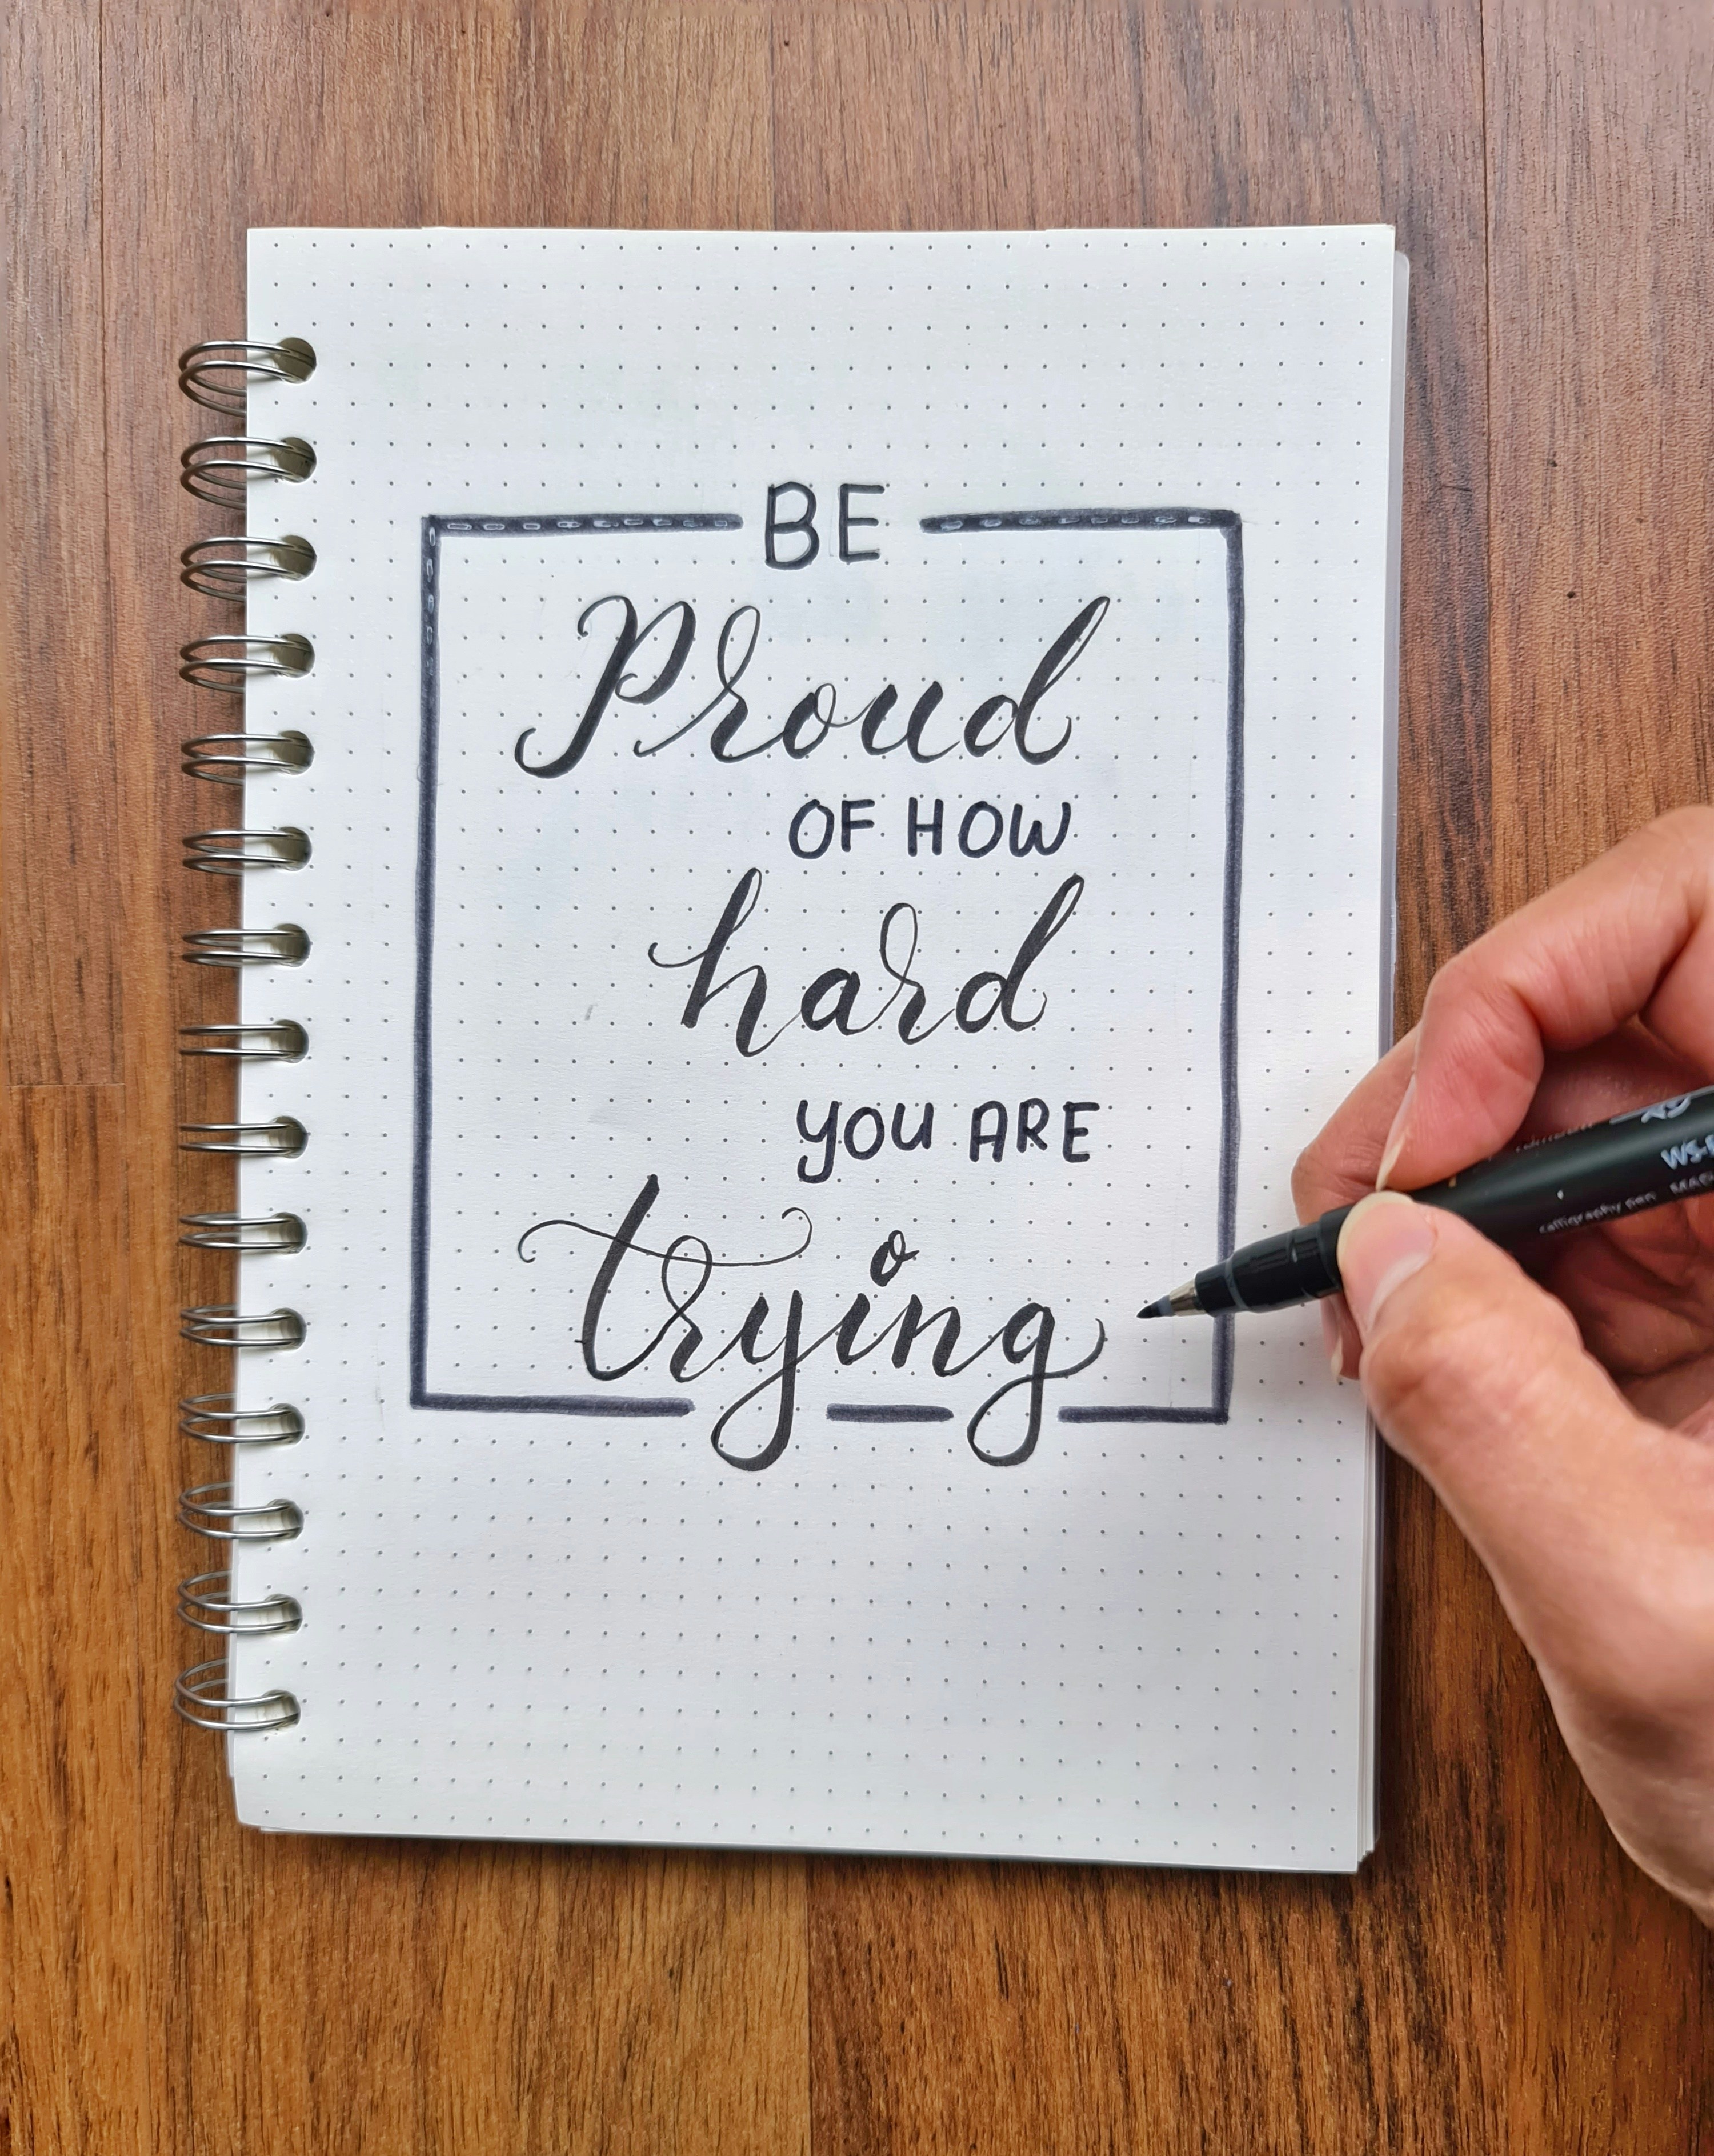 BE
Proud
OF HOW
hard
YOU ARE
trying
calligraphy pen